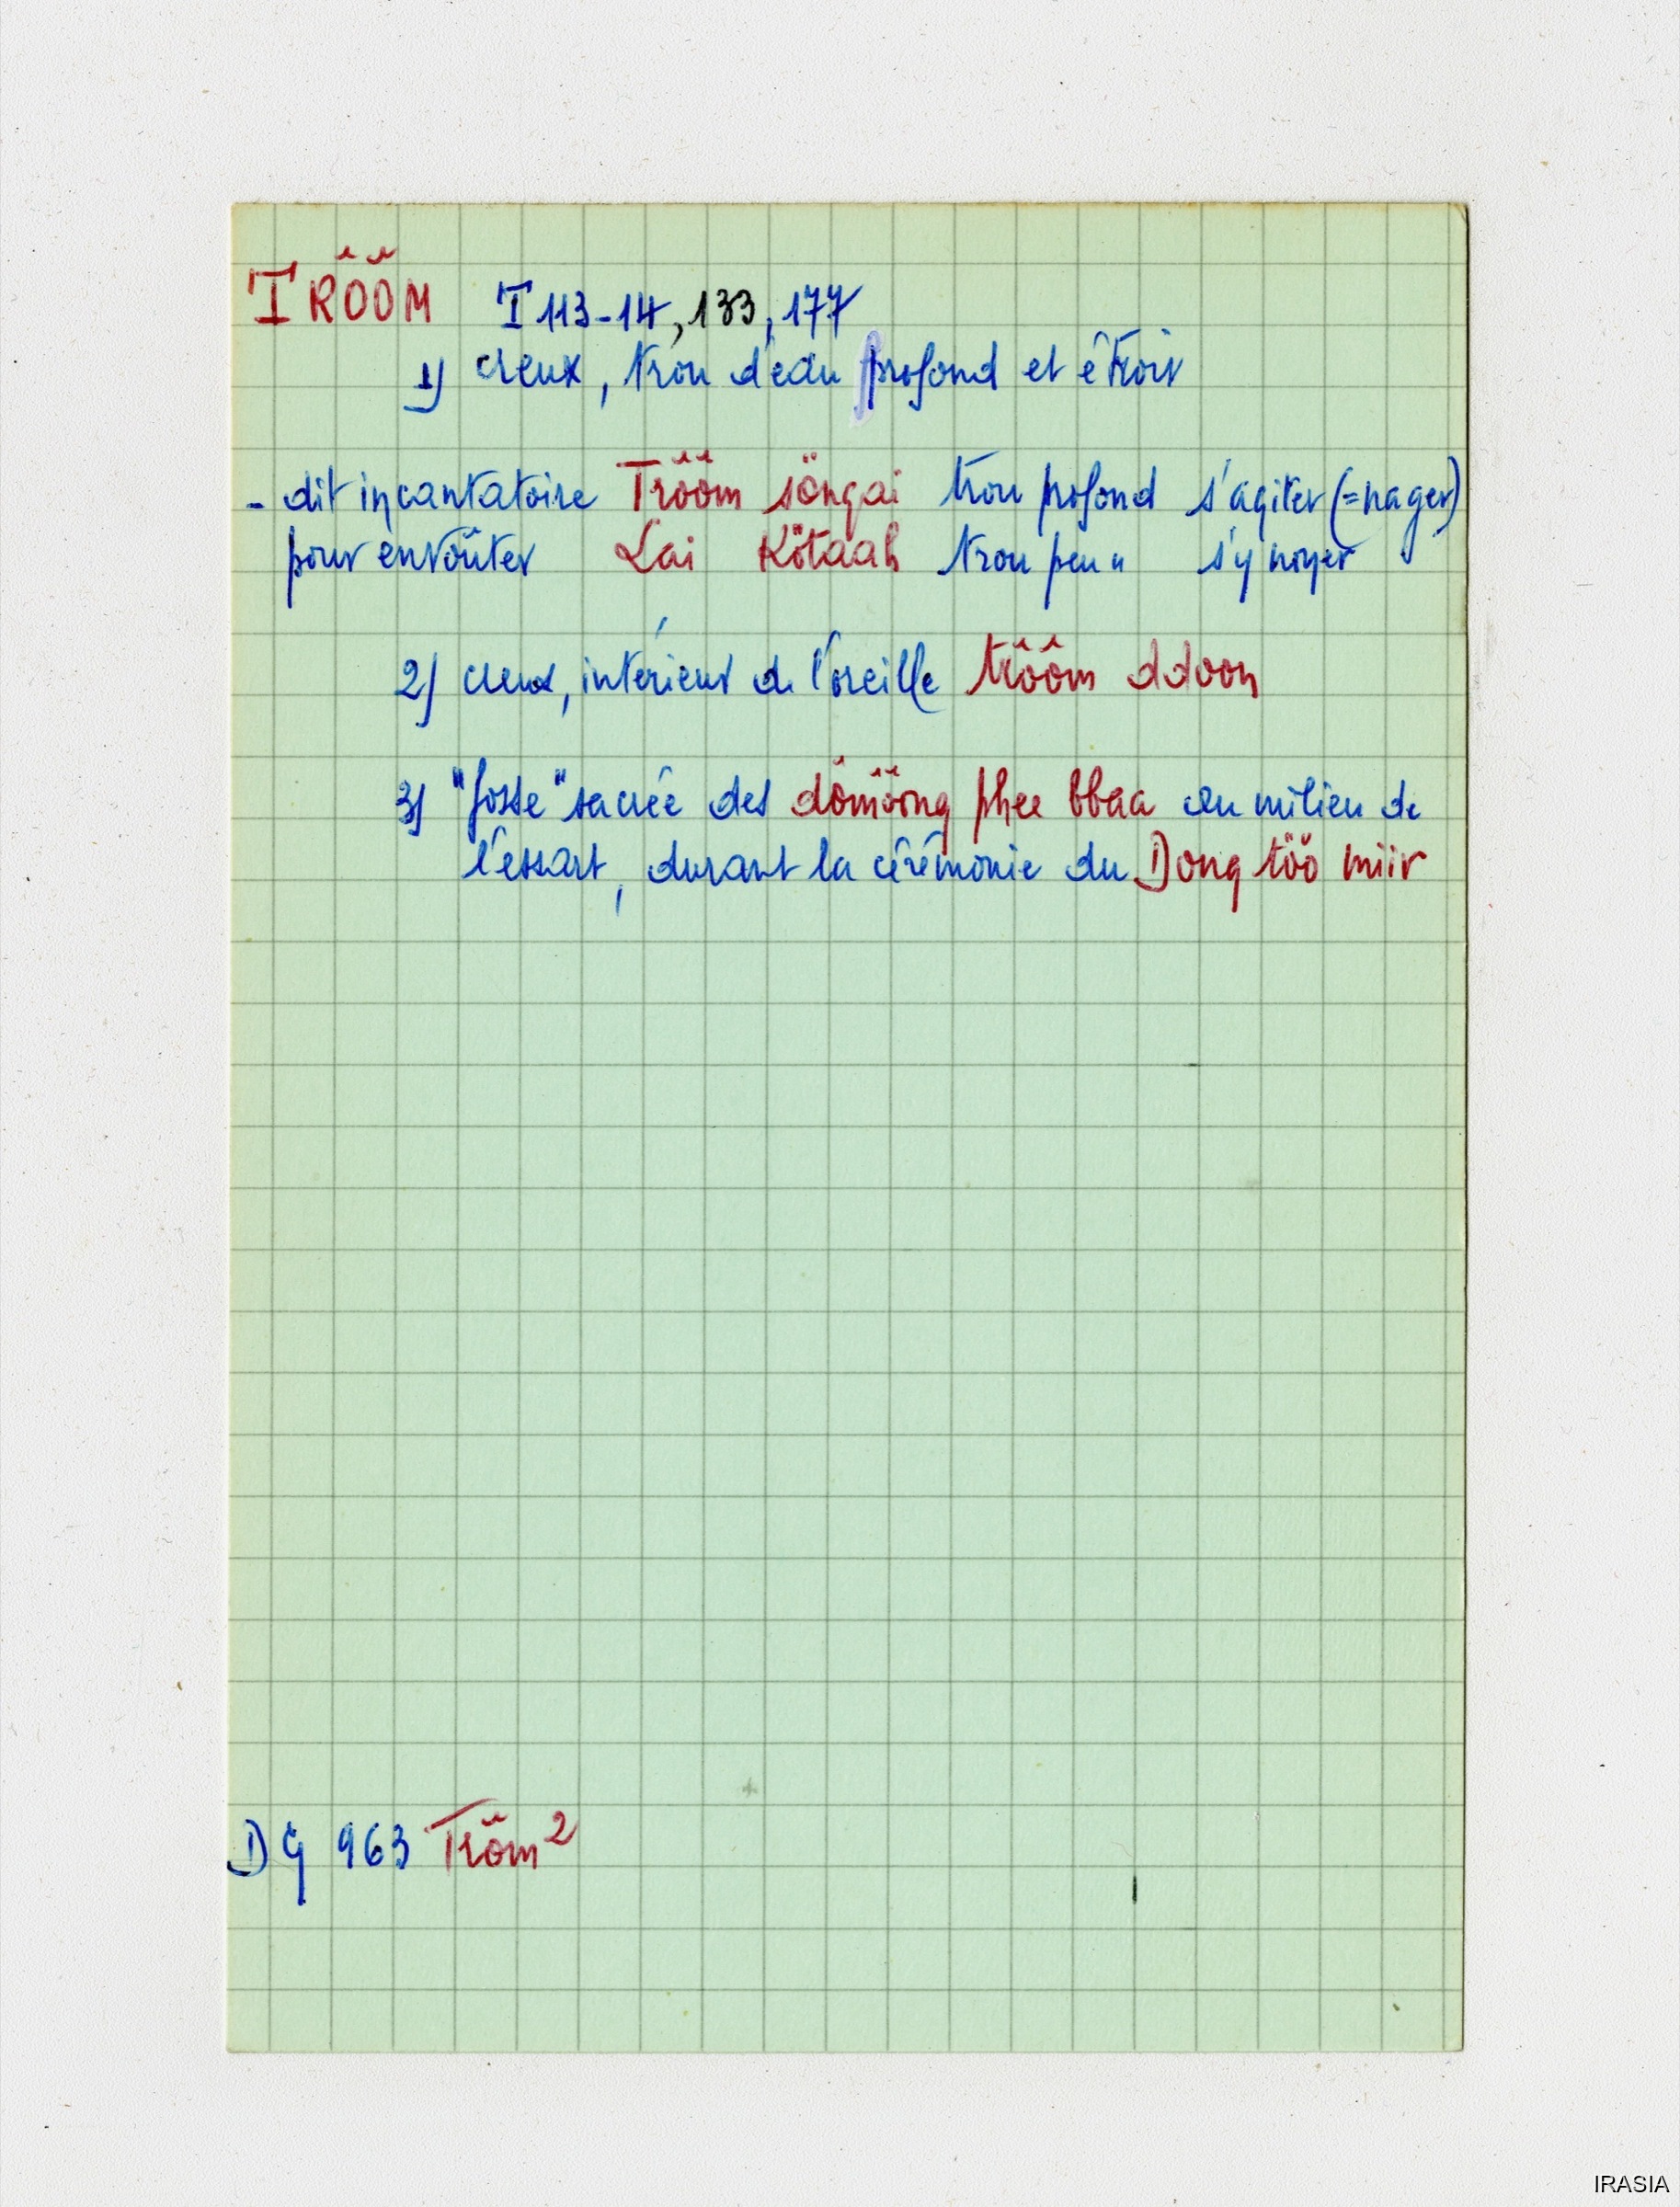 TRÖÖM T 113-14, 133, 177
1) creux, trou d'eau profond et étroit
- dit incantatoire Trööm söngai trou profond s'agiter (=nager)
pour envoûter Lai Kötaah trou peu " s'y noyer
2) creux, intérieur de l'oreille trôôm ddoon
3) "fosse" sacrée des dömöông phee bbaa au milieu de
l'essart, durant la cérémonie du Dong töö miir
DG 963 Tröm²
IRASIA